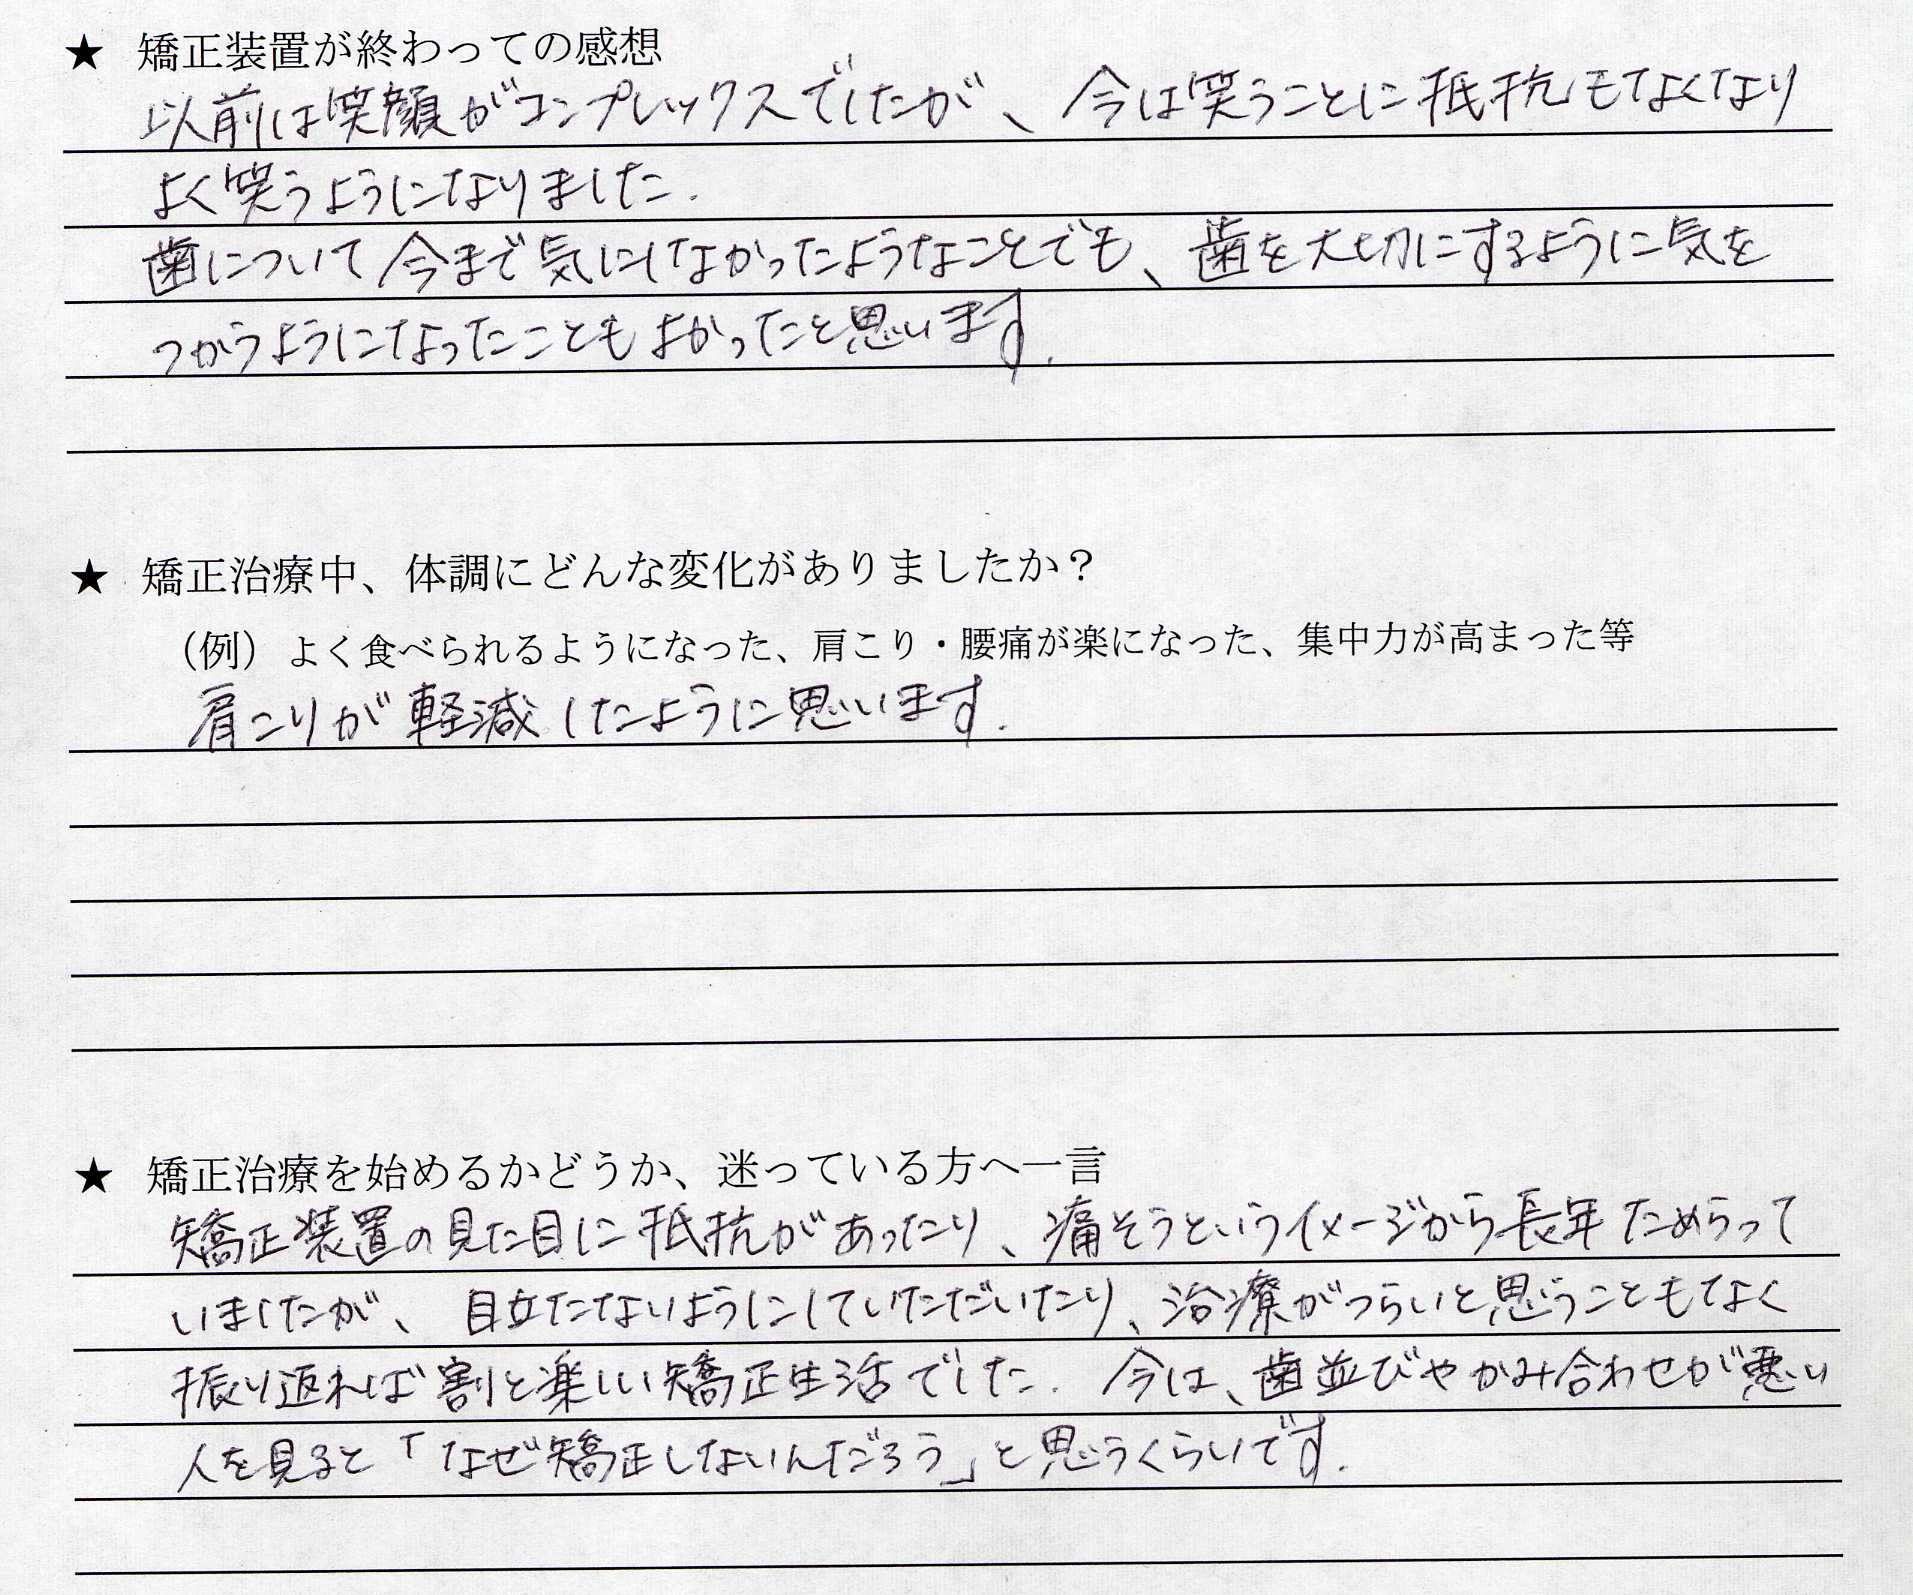 ★ 矯正装置が終わっての感想
以前は笑顔がコンプレックスでしたが、今は笑うことに抵抗もなくなり
よく笑うようになりました.
歯について今まで気にしなかったようなことでも、歯を大切にするように気を
つかうようになったこともよかったと思います.
★ 矯正治療中、体調にどんな変化がありましたか？
（例）よく食べられるようになった、肩こり・腰痛が楽になった、集中力が高まった等
肩こりが軽減したように思います.
★ 矯正治療を始めるかどうか、迷っている方へ一言
矯正装置の見た目に抵抗があったり、痛そうというイメージから長年ためらって
いましたが、目立たないようにしていただいたり、治療がつらいと思うこともなく
振り返れば割と楽しい矯正生活でした. 今は、歯並びやかみ合わせが悪い
人を見ると「なぜ矯正しないんだろう」と思うくらいです.